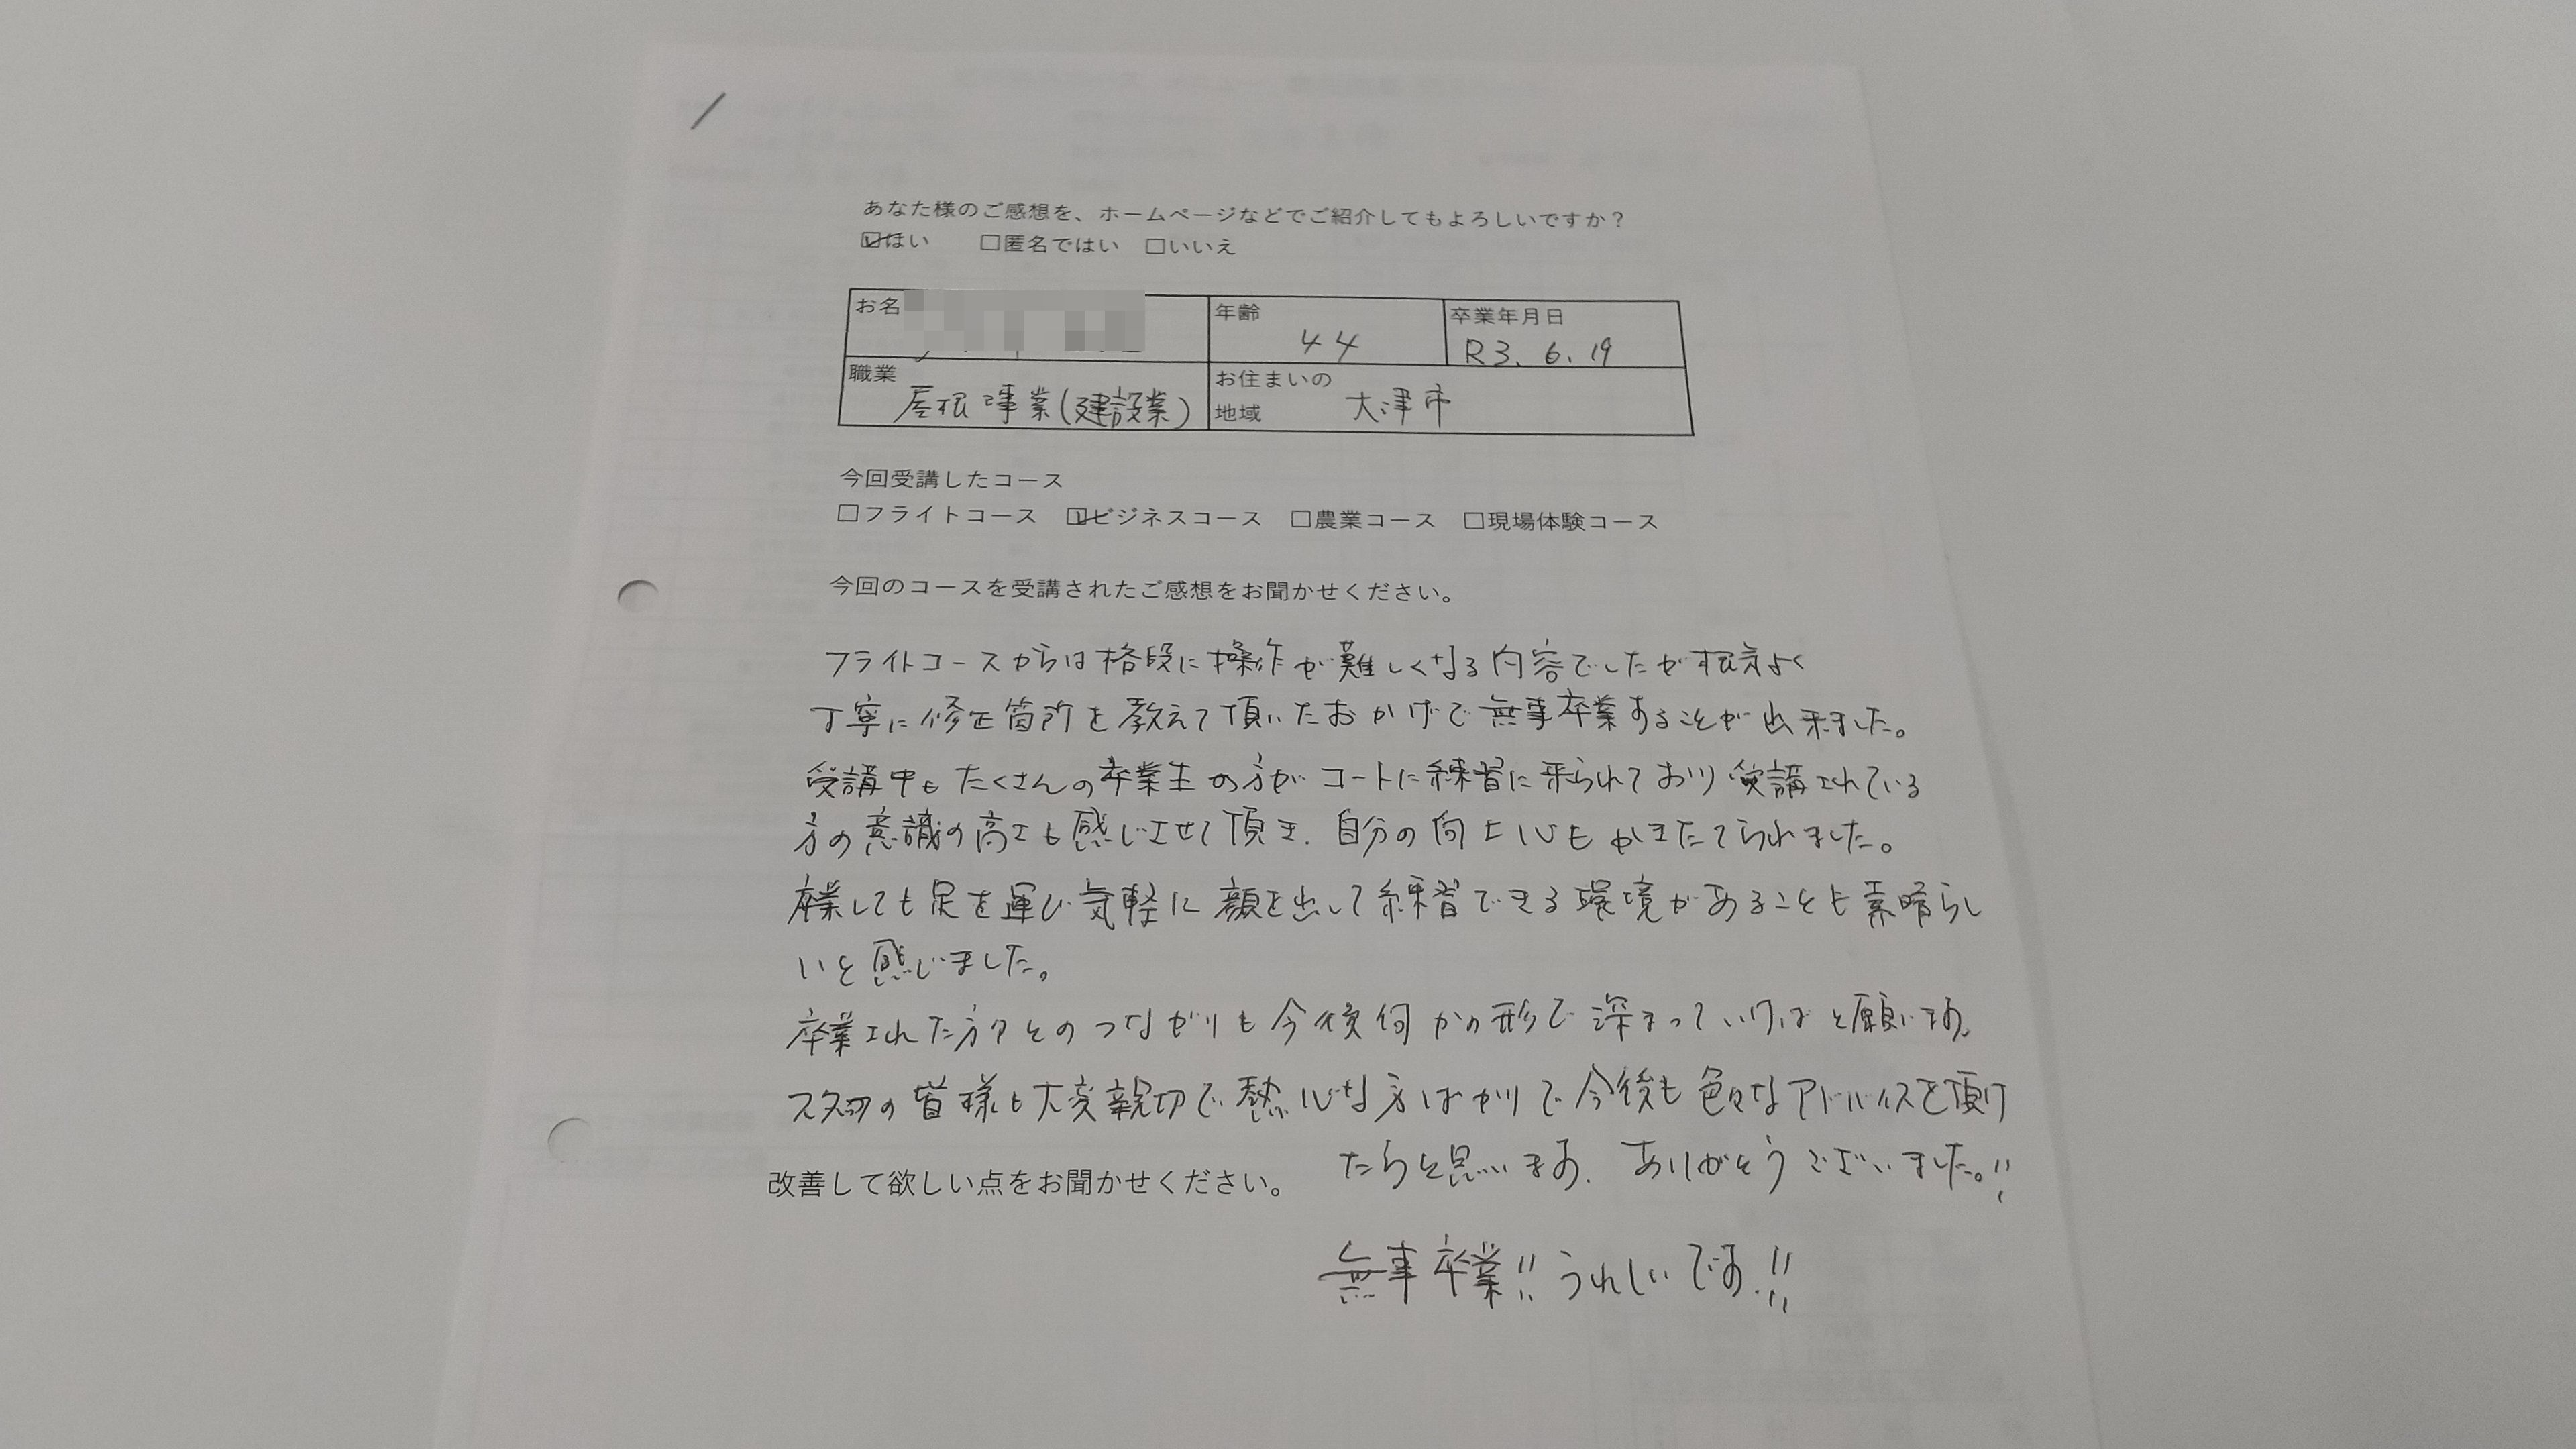 あなた様のご感想を、ホームページなどでご紹介してもよろしいですか？
☑はい　□匿名ではい　□いいえ
お名
年齢
44
卒業年月日
R3. 6. 19
職業
屋根事業(建設業)
お住まいの
地域
大津市
今回受講したコース
□フライトコース　☑ビジネスコース　□農業コース　□現場体験コース
今回のコースを受講されたご感想をお聞かせください。
フライトコースからは格段に操作が難しくなる内容でしたが根気よく
丁寧に修正箇所を教えて頂いたおかげで無事卒業することが出来ました。
受講中もたくさんの卒業生の方がコートに練習に来られており受講されている
方の意識の高さも感じさせて頂き、自分の向上心もかきたてられました。
卒業しても足を運び気軽に顔を出して練習できる環境があることも素晴らし
いと感じました。
卒業された方々とのつながりも今後何かの形で深まっていけばと願います。
スタッフの皆様も大変親切で熱心な方ばかりで今後も色々なアドバイスを頂け
たらと思います。ありがとうございました。!!
改善して欲しい点をお聞かせください。
無事卒業!! うれしいです.!!